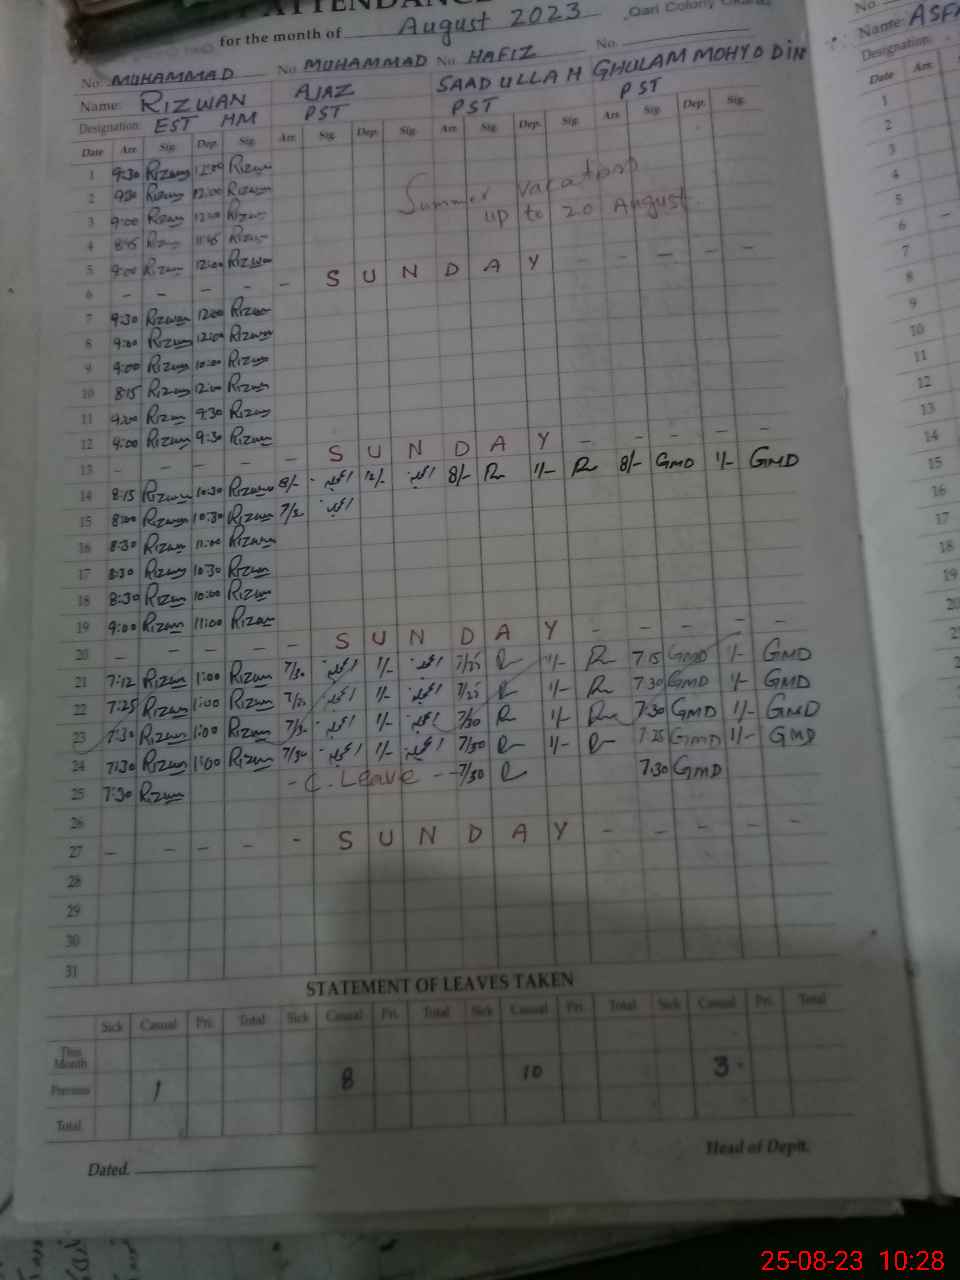 ATTENDANCE
for the month of August 2023 Qari Colony
No. MUHAMMAD No. MUHAMMAD No. HAFIZ No.
Name: RIZWAN AJAZ SAADULLAH GHULAM MOHYODIN
Designation: EST HM PST PST PST
Date Arr. Sig. Dep. Sig. Arr. Sig. Dep. Sig. Arr. Sig. Dep. Sig. Arr. Sig. Dep. Sig.
1 9:30 Rizwan 12:00 Rizwan
2 9:30 Rizwan 12:00 Rizwan Summer vacations
3 9:00 Rizwan 12:00 Rizwan up to 20 August
4 8:45 Rizwan 11:45 Rizwan
5 9:00 Rizwan 12:00 Rizwan
6 - - - - - S U N D A Y - - - - -
7 9:30 Rizwan 12:00 Rizwan
8 9:00 Rizwan 12:00 Rizwan
9 9:00 Rizwan 10:00 Rizwan
10 8:15 Rizwan 12:00 Rizwan
11 9:00 Rizwan 9:30 Rizwan
12 9:00 Rizwan 9:30 Rizwan
13 - - - - - S U N D A Y - - - - -
14 8:15 Rizwan 10:30 Rizwan 8/- 12/- 8/- R 1/- R 8/- GMD 1/- GMD
15 8:00 Rizwan 10:30 Rizwan
16 8:30 Rizwan 11:00 Rizwan
17 8:30 Rizwan 10:30 Rizwan
18 8:30 Rizwan 10:00 Rizwan
19 9:00 Rizwan 11:00 Rizwan
20 - - - - - S U N D A Y - - - - -
21 7:12 Rizwan 1:00 Rizwan 7/30 1/- 7/25 R 1/- R 7:15 GMD 1/- GMD
22 7:25 Rizwan 1:00 Rizwan 1/- 7/25 R 1/- R 7:30 GMD 1/- GMD
23 7:30 Rizwan 1:00 Rizwan 1/- 7/30 R 1/- R 7:30 GMD 1/- GMD
24 7:30 Rizwan 1:00 Rizwan 7/30 1/- 7/30 R 1/- R 7:25 GMD 1/- GMD
25 7:30 Rizwan - C. Leave - 7/30 R 7:30 GMD
26
27 - - - - - S U N D A Y - - - - -
28
29
30
31
STATEMENT OF LEAVES TAKEN
Sick Casual Pri. Total Sick Casual Pri. Total Sick Casual Pri. Total Sick Casual Pri. Total
This Month
Previous 1 8 10 3
Total
Head of Deptt.
Dated.
No.
Name: ASFA
Designation:
Date Arr.
1
2
3
4
5
6
7
8
9
10
11
12
13
14
15
16
17
18
19
25-08-23 10:28